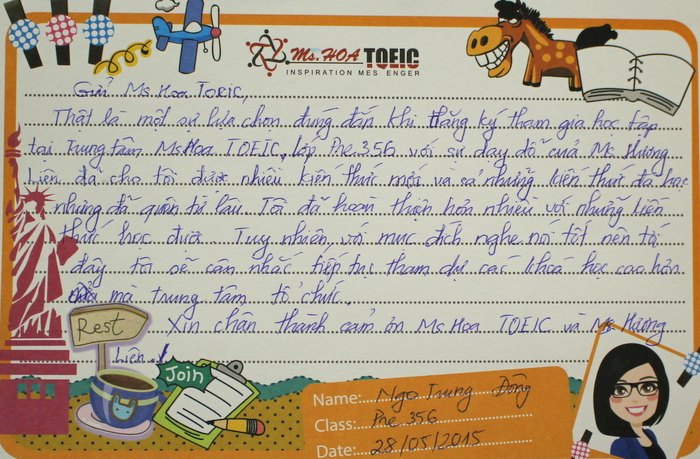 Ms.HOA TOEIC
INSPIRATION MES ENGER
Gửi Ms Hoa TOEIC,
Thật là một sự lựa chọn đúng đắn khi đăng ký tham gia học tập
tại Trung tâm Ms Hoa TOEIC, lớp Pre 356 với sự dạy dỗ của Ms. Hương
Liên đã cho tôi được nhiều kiến thức mới và cả những kiến thức đã học
nhưng đã quên từ lâu. Tôi đã hoàn thiện hơn nhiều với những kiến
thức học được. Tuy nhiên, với mục đích nghe nói tốt nên tôi
đây tôi sẽ cân nhắc tiếp tục tham dự các khoá học cao hơn
mà trung tâm tổ chức.
Xin chân thành cảm ơn Ms Hoa TOEIC và Ms. Hương
Liên ./
Rest
Join
Name: Ngo Trung Đông
Class: Pre 356
Date: 28/05/2015